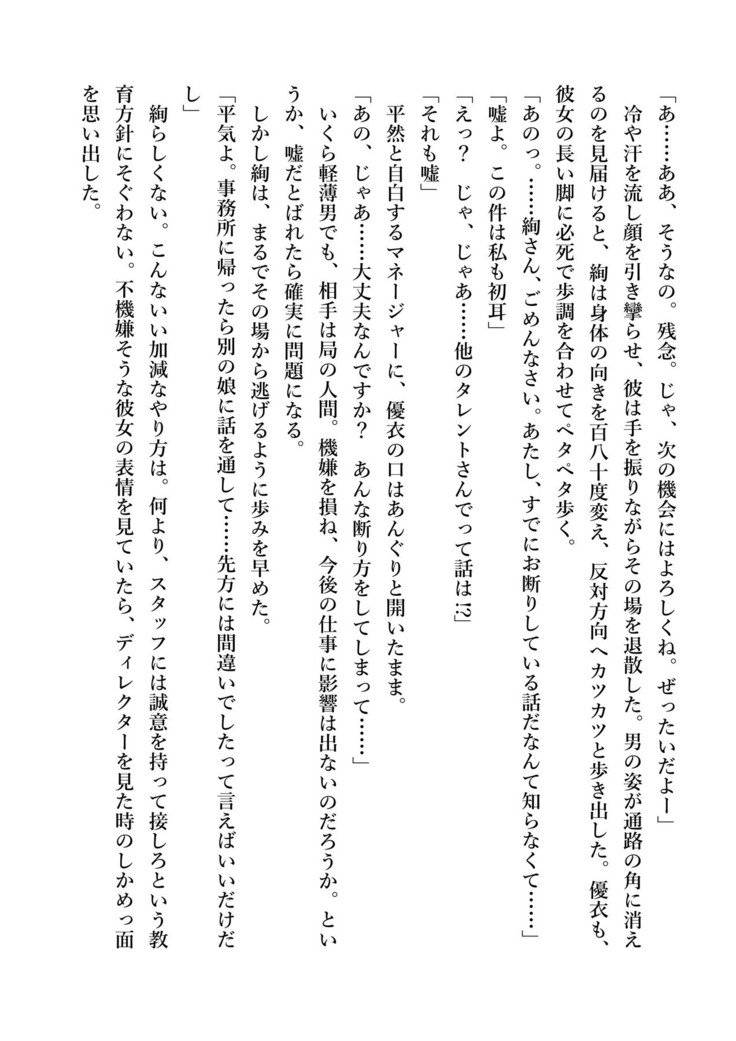 「あ……ああ、そうなの。残念。じゃ、次の機会にはよろしくね。ぜったいだよー」
　冷や汗を流し顔を引き攣らせ、彼は手を振りながらその場を退散した。男の姿が通路の角に消え
るのを見届けると、絢は身体の向きを百八十度変え、反対方向へカツカツと歩き出した。優衣も、
彼女の長い脚に必死で歩調を合わせてペタペタ歩く。
「あのっ。……絢さん、ごめんなさい。あたし、すでにお断りしている話だなんて知らなくて……」
「嘘よ。この件は私も初耳」
「えっ？　じゃ、じゃあ……他のタレントさんでって話は!?」
「それも嘘」
　平然と自白するマネージャーに、優衣の口はあんぐりと開いたまま。
「あの、じゃあ……大丈夫なんですか？　あんな断り方をしてしまって……」
　いくら軽薄男でも、相手は局の人間。機嫌を損ね、今後の仕事に影響は出ないのだろうか。とい
うか、嘘だとばれたら確実に問題になる。
　しかし絢は、まるでその場から逃げるように歩みを早めた。
「平気よ。事務所に帰ったら別の娘に話を通して……先方には間違いでしたって言えばいいだけだ
し」
　絢らしくない。こんないい加減なやり方は。何より、スタッフには誠意を持って接しろという教
育方針にそぐわない。不機嫌そうな彼女の表情を見ていたら、ディレクターを見た時のしかめっ面
を思い出した。